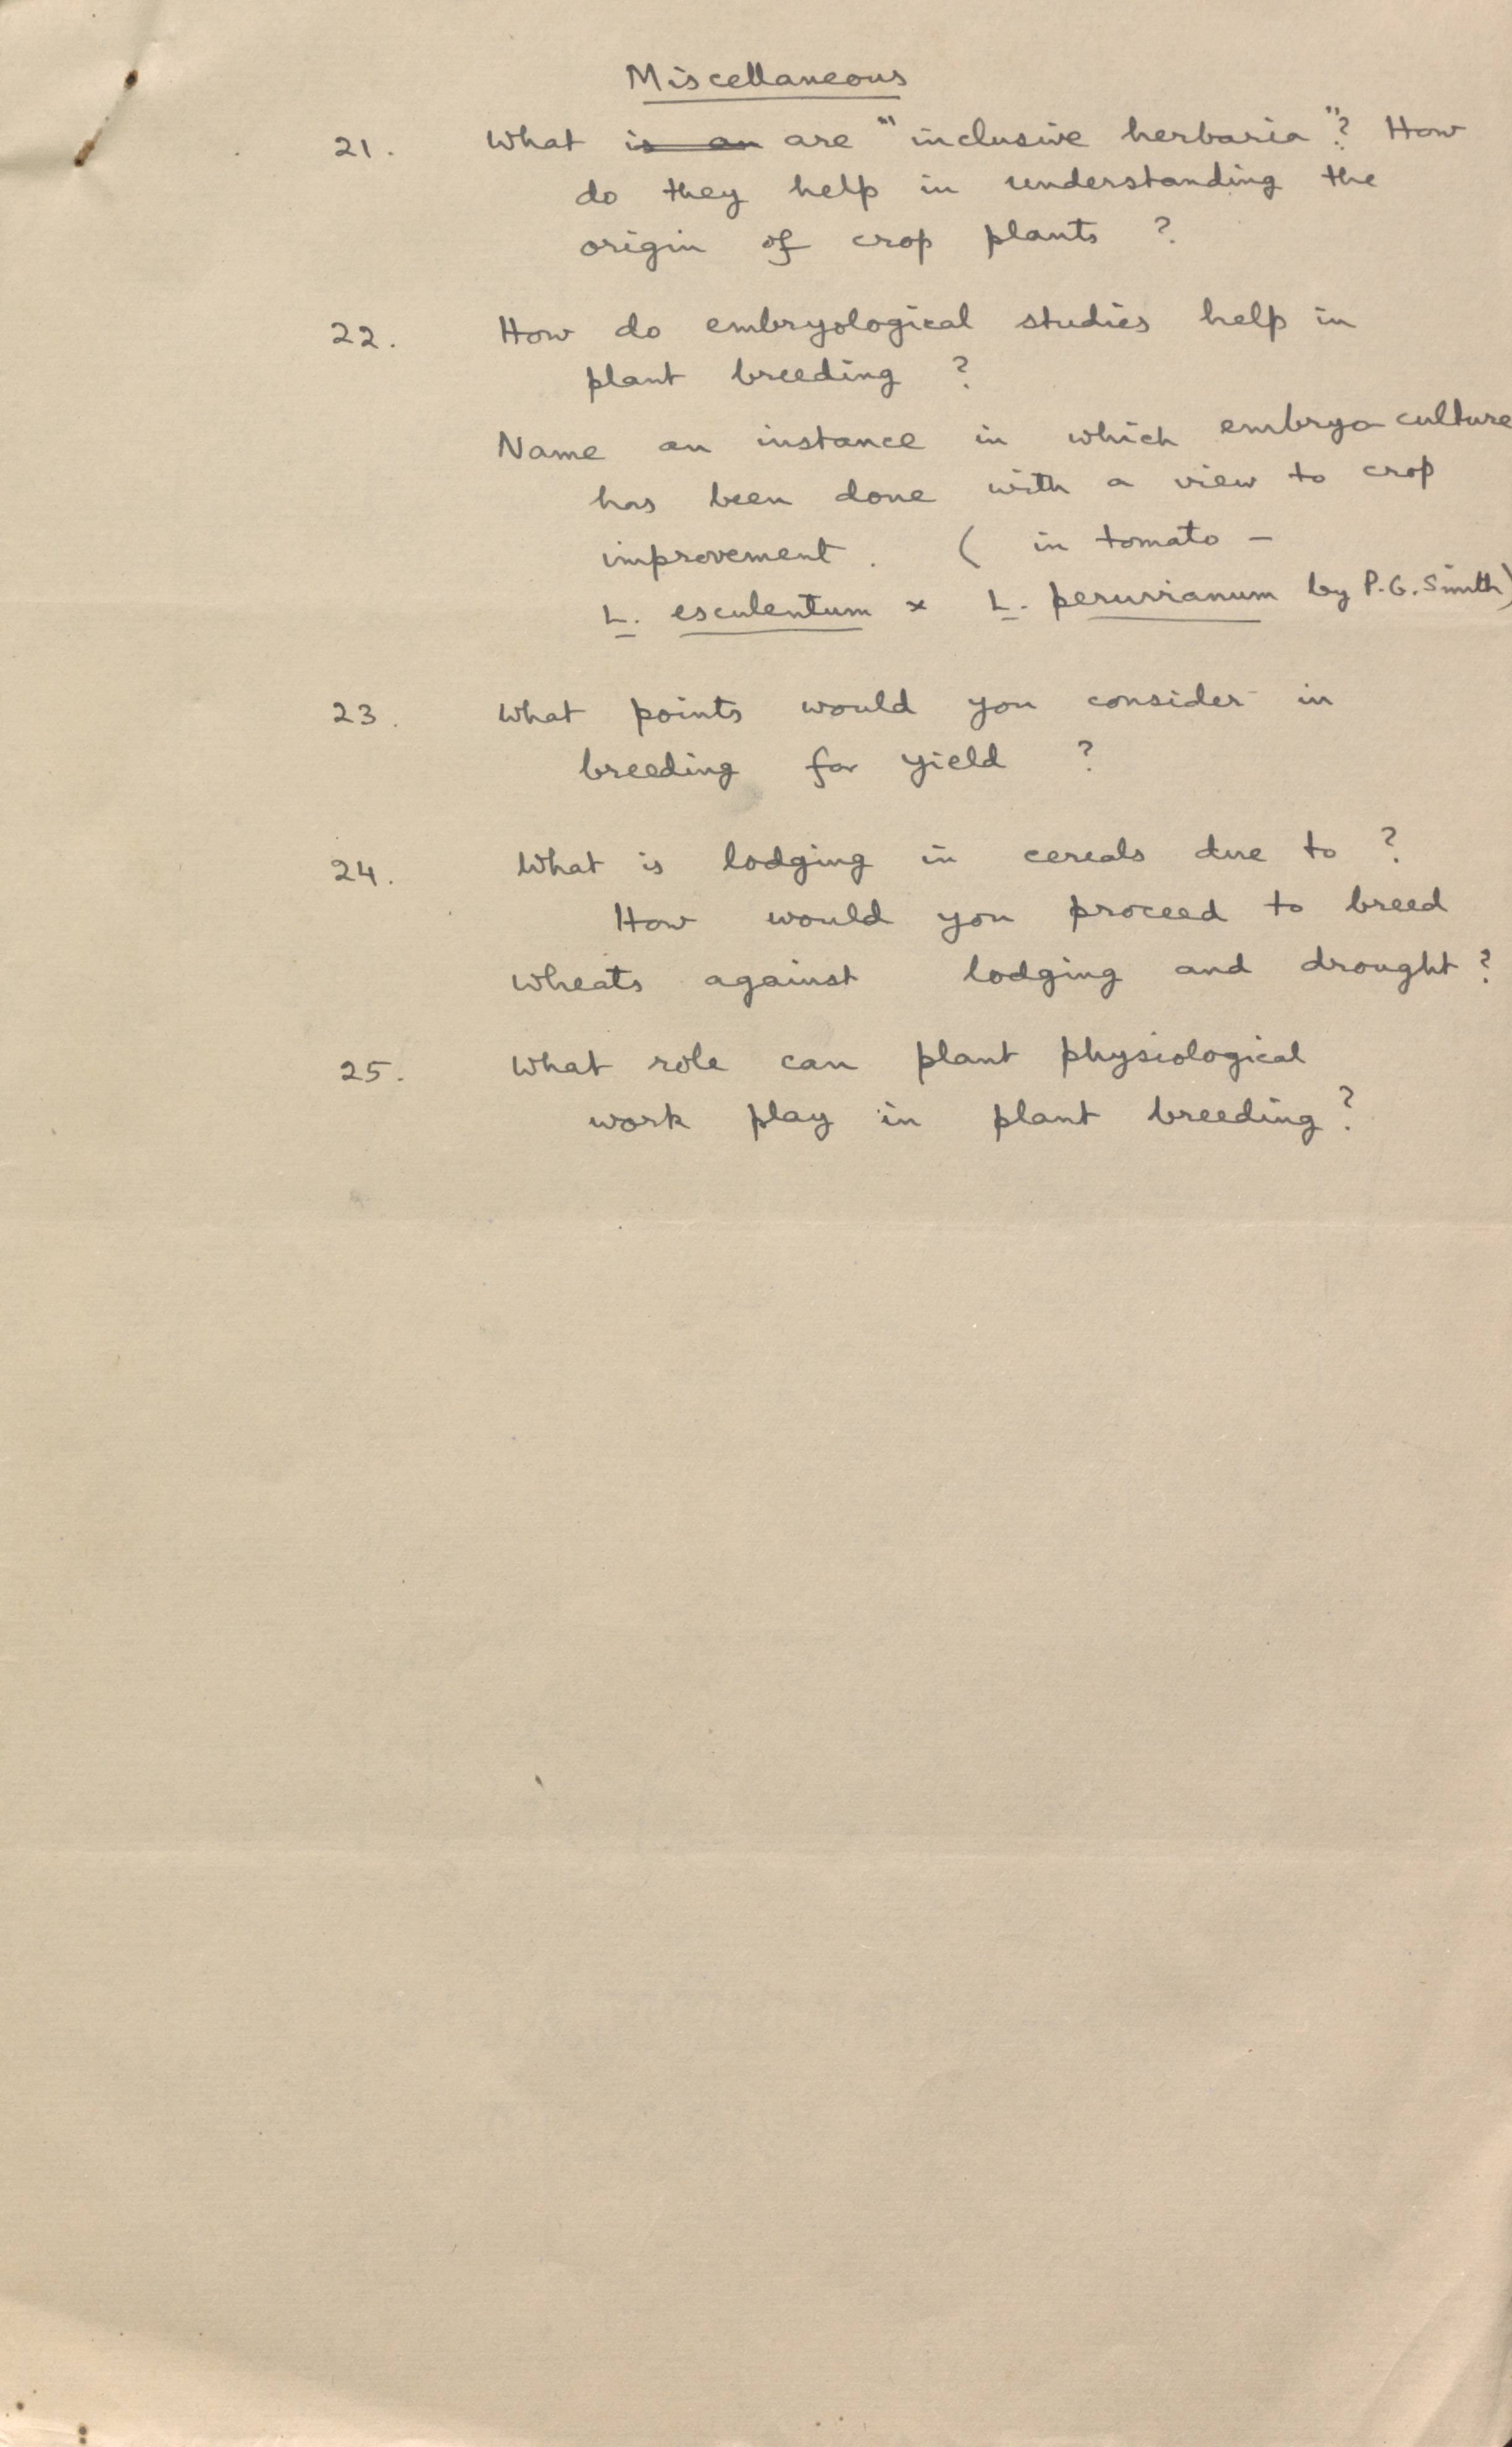 Miscellaneous
21. What is an are "inclusive herbaria"? How
do they help in understanding the
origin of crop plants ?
22. How do embryological studies help in
plant breeding ?
Name an instance in which embryo culture
has been done with a view to crop
improvement. ( in tomato –
L. esculentum × L. peruvianum by P.G. Smith)
23. What points would you consider in
breeding for yield ?
24. What is lodging in cereals due to ?
How would you proceed to breed
wheats against lodging and drought ?
25. What role can plant physiological
work play in plant breeding ?